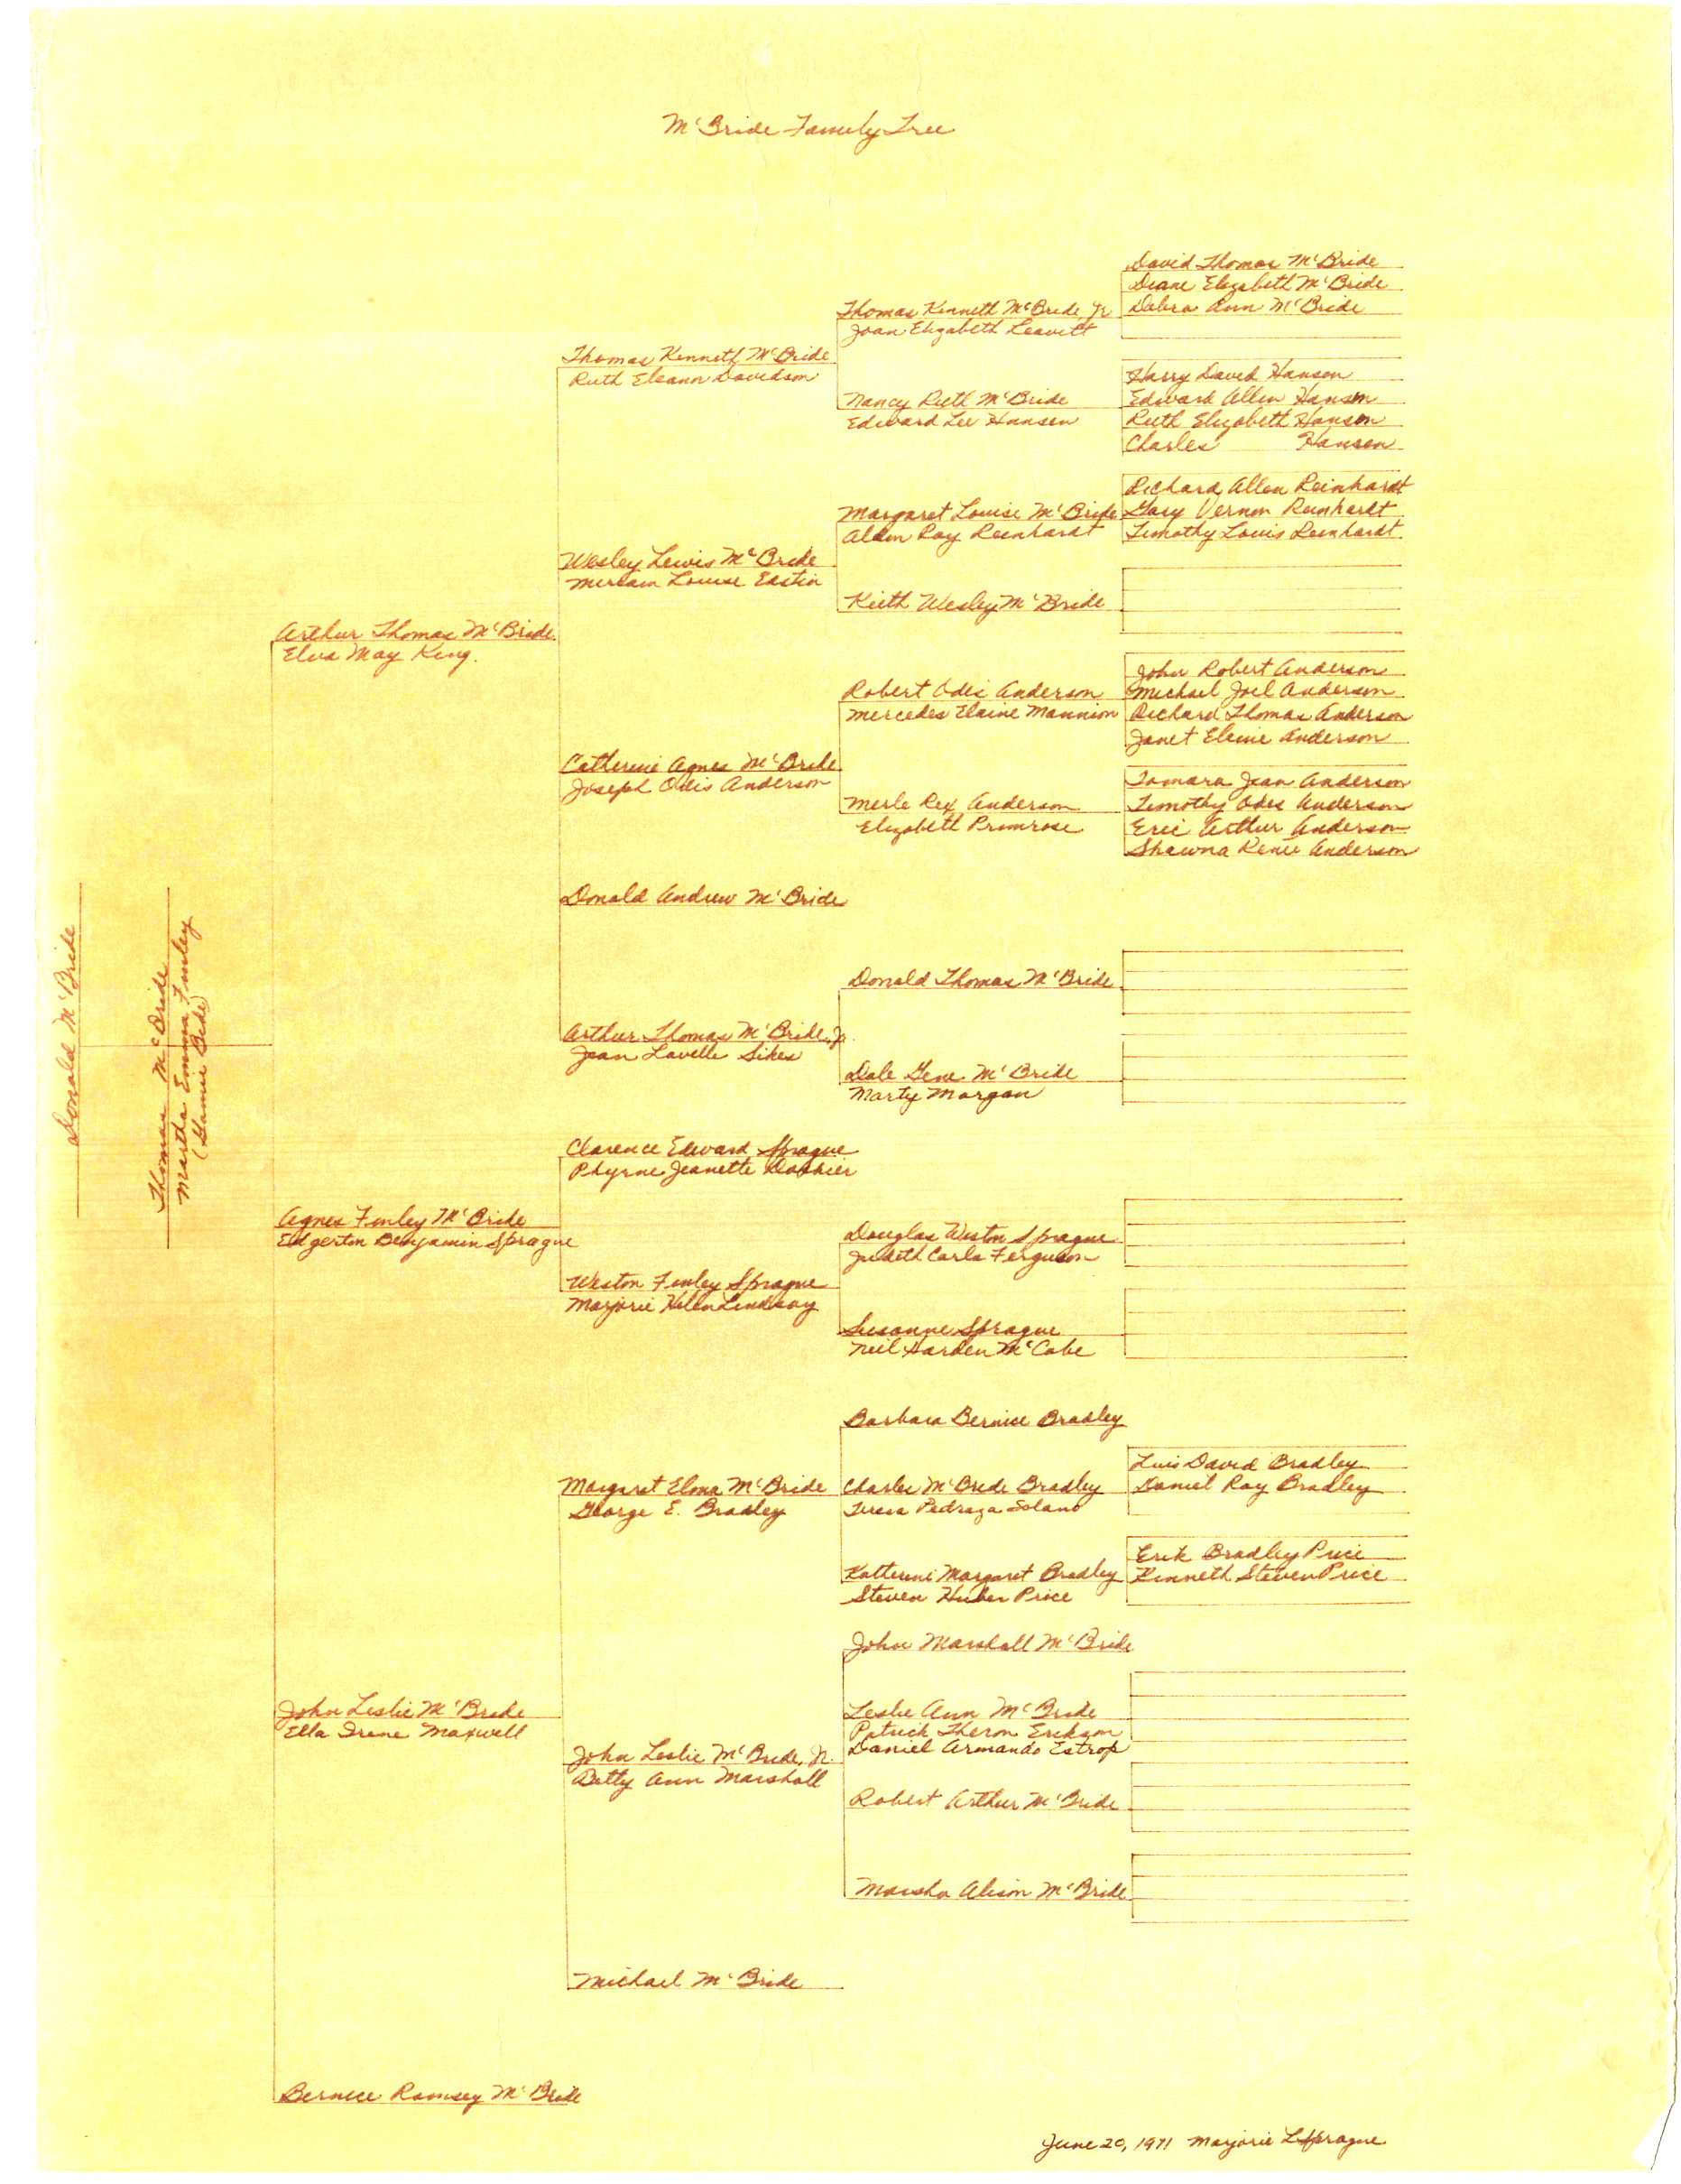 McBride Family Tree
Donald McBride
Thomas McBride
Martha Emma Finley
Arthur Thomas McBride
Elva May King.
Thomas Kenneth McBride
Ruth Eleann Davidson
Thomas Kenneth McBride Jr
Joan Elizabeth Leavitt
David Thomas McBride
Diane Elizabeth McBride
Debra Ann McBride
Nancy Ruth McBride
Edward Lee Hansen
Harry David Hansen
Edward Allen Hansen
Ruth Elizabeth Hansen
Charles Hansen
Wesley Lewis McBride
Miriam Louise Eastin
Margaret Louise McBride
Alden Ray Reinhardt
Richard Allen Reinhardt
Gary Vernon Reinhardt
Timothy Louis Reinhardt
Keith Wesley McBride
Catherine Agnes McBride
Joseph Odis Anderson
Robert Odis Anderson
Mercedes Elaine Mannion
John Robert Anderson
Michael Joel Anderson
Richard Thomas Anderson
Janet Elaine Anderson
Merle Rex Anderson
Elizabeth Primrose
Tamara Jean Anderson
Timothy Odis Anderson
Eric Arthur Anderson
Shawna Renee Anderson
Donald Andrew McBride
Arthur Thomas McBride, Jr.
Jean Lavelle Sikes
Donald Thomas McBride
Dale Gene McBride
Marty Morgan
Agnes Finley McBride
Edgerton Benjamin Sprague
Clarence Edward Sprague
Phyrne Jeanette
Weston Finley Sprague
Marjorie Helen Lindsay
Douglas Weston Sprague
Judith Carla Ferguson
Susanne Sprague
Neil Harden McCabe
John Leslie McBride
Ella Irene Maxwell
Margaret Elona McBride
George E. Bradley
Barbara Bernice Bradley
Charles McBride Bradley
Teresa Pedraza Solano
Luis David Bradley
Daniel Ray Bradley
Katherine Margaret Bradley
Steven Huber Price
Erik Bradley Price
Kenneth Steven Price
John Leslie McBride, Jr.
Betty Ann Marshall
John Marshall McBride
Leslie Ann McBride
Patrick Theron Erikson
Daniel Armando Estrop
Robert Arthur McBride
Marsha Alison McBride
Michael McBride
Bernice Ramsey McBride
June 20, 1971 Marjorie L Sprague